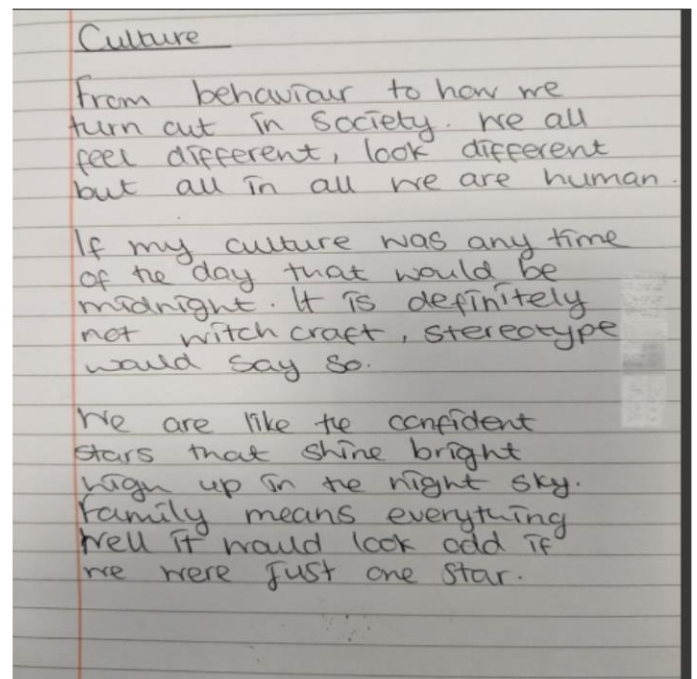 Culture
From behaviour to how we
turn out in Society. We all
feel different, look different
but all in all we are human.
If my culture was any time
of the day that would be
midnight. It is definitely
not witch craft, stereotype
would say so.
We are like the confident
stars that shine bright
high up in the night sky.
Family means everything
Well it would look odd if
we were just one star.